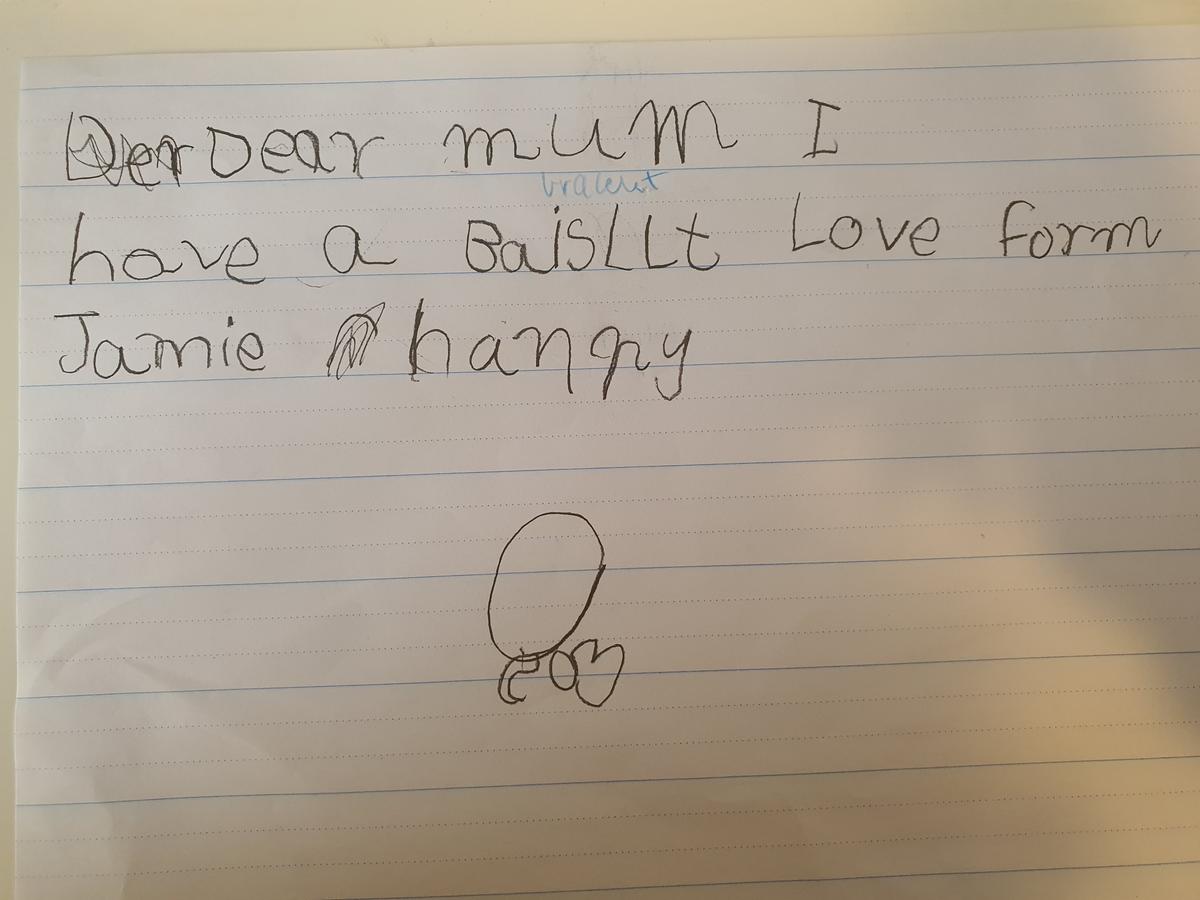 Dear mum I
bracent
have a BaisLLt Love form
Jamie hangry